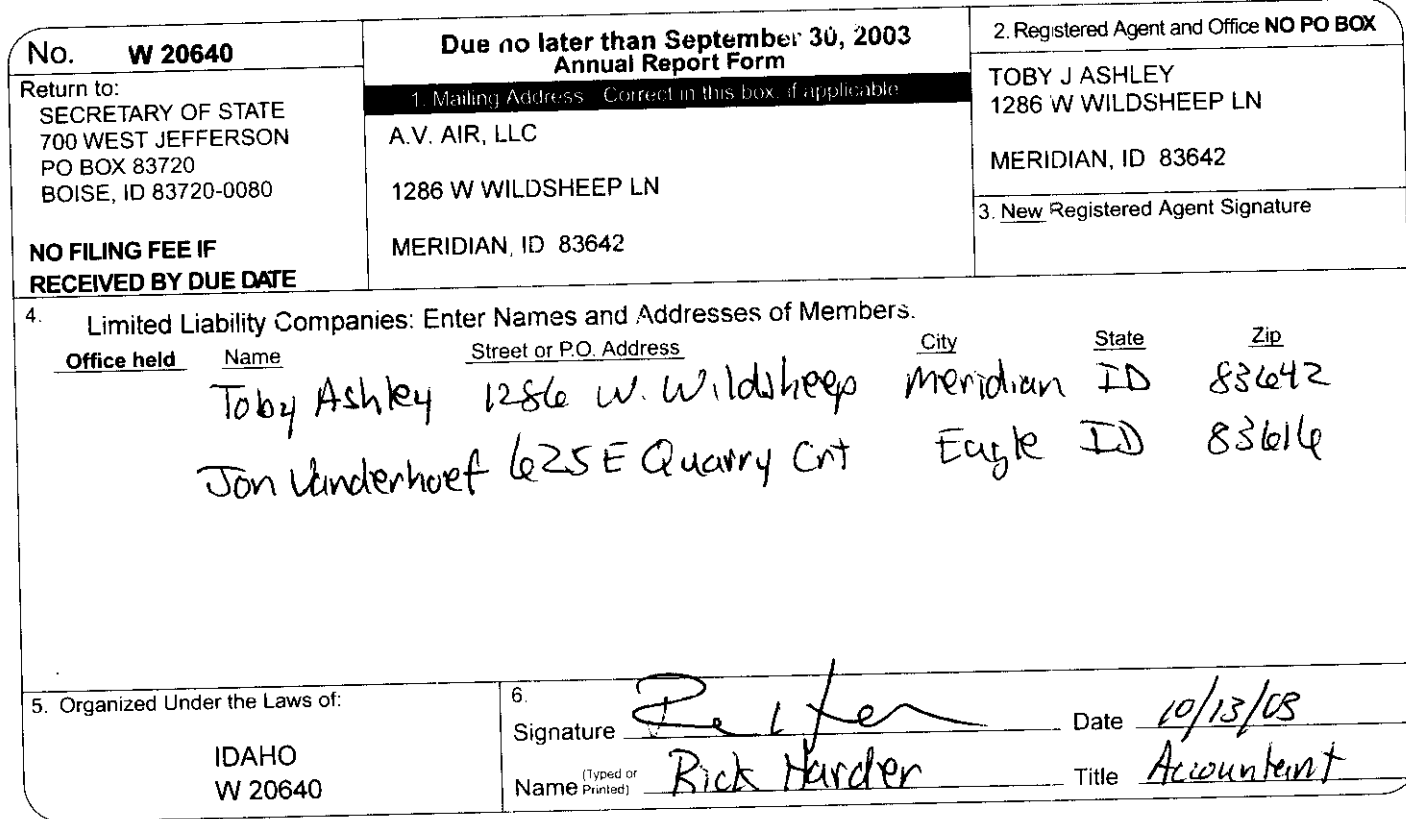 No. W 20640
Return to:
SECRETARY OF STATE
700 WEST JEFFERSON
PO BOX 83720
BOISE, ID 83720-0080
NO FILING FEE IF
RECEIVED BY DUE DATE
Due no later than September 30, 2003
Annual Report Form
1. Mailing Address Correct in this box, if applicable
A.V. AIR, LLC
1286 W WILDSHEEP LN
MERIDIAN, ID 83642
2. Registered Agent and Office NO PO BOX
TOBY J ASHLEY
1286 W WILDSHEEP LN
MERIDIAN, ID 83642
3. New Registered Agent Signature
4. Limited Liability Companies: Enter Names and Addresses of Members.
Office held Name Street or P.O. Address City State Zip
Toby Ashley 1286 W. Wildsheep Meridian ID 83642
Jon Vanderhoef 625 E Quarry Crt Eagle ID 83616
5. Organized Under the Laws of:
IDAHO
W 20640
6.
Signature Date 10/13/03
Name (Typed or Printed) Rick Harder Title Accountant